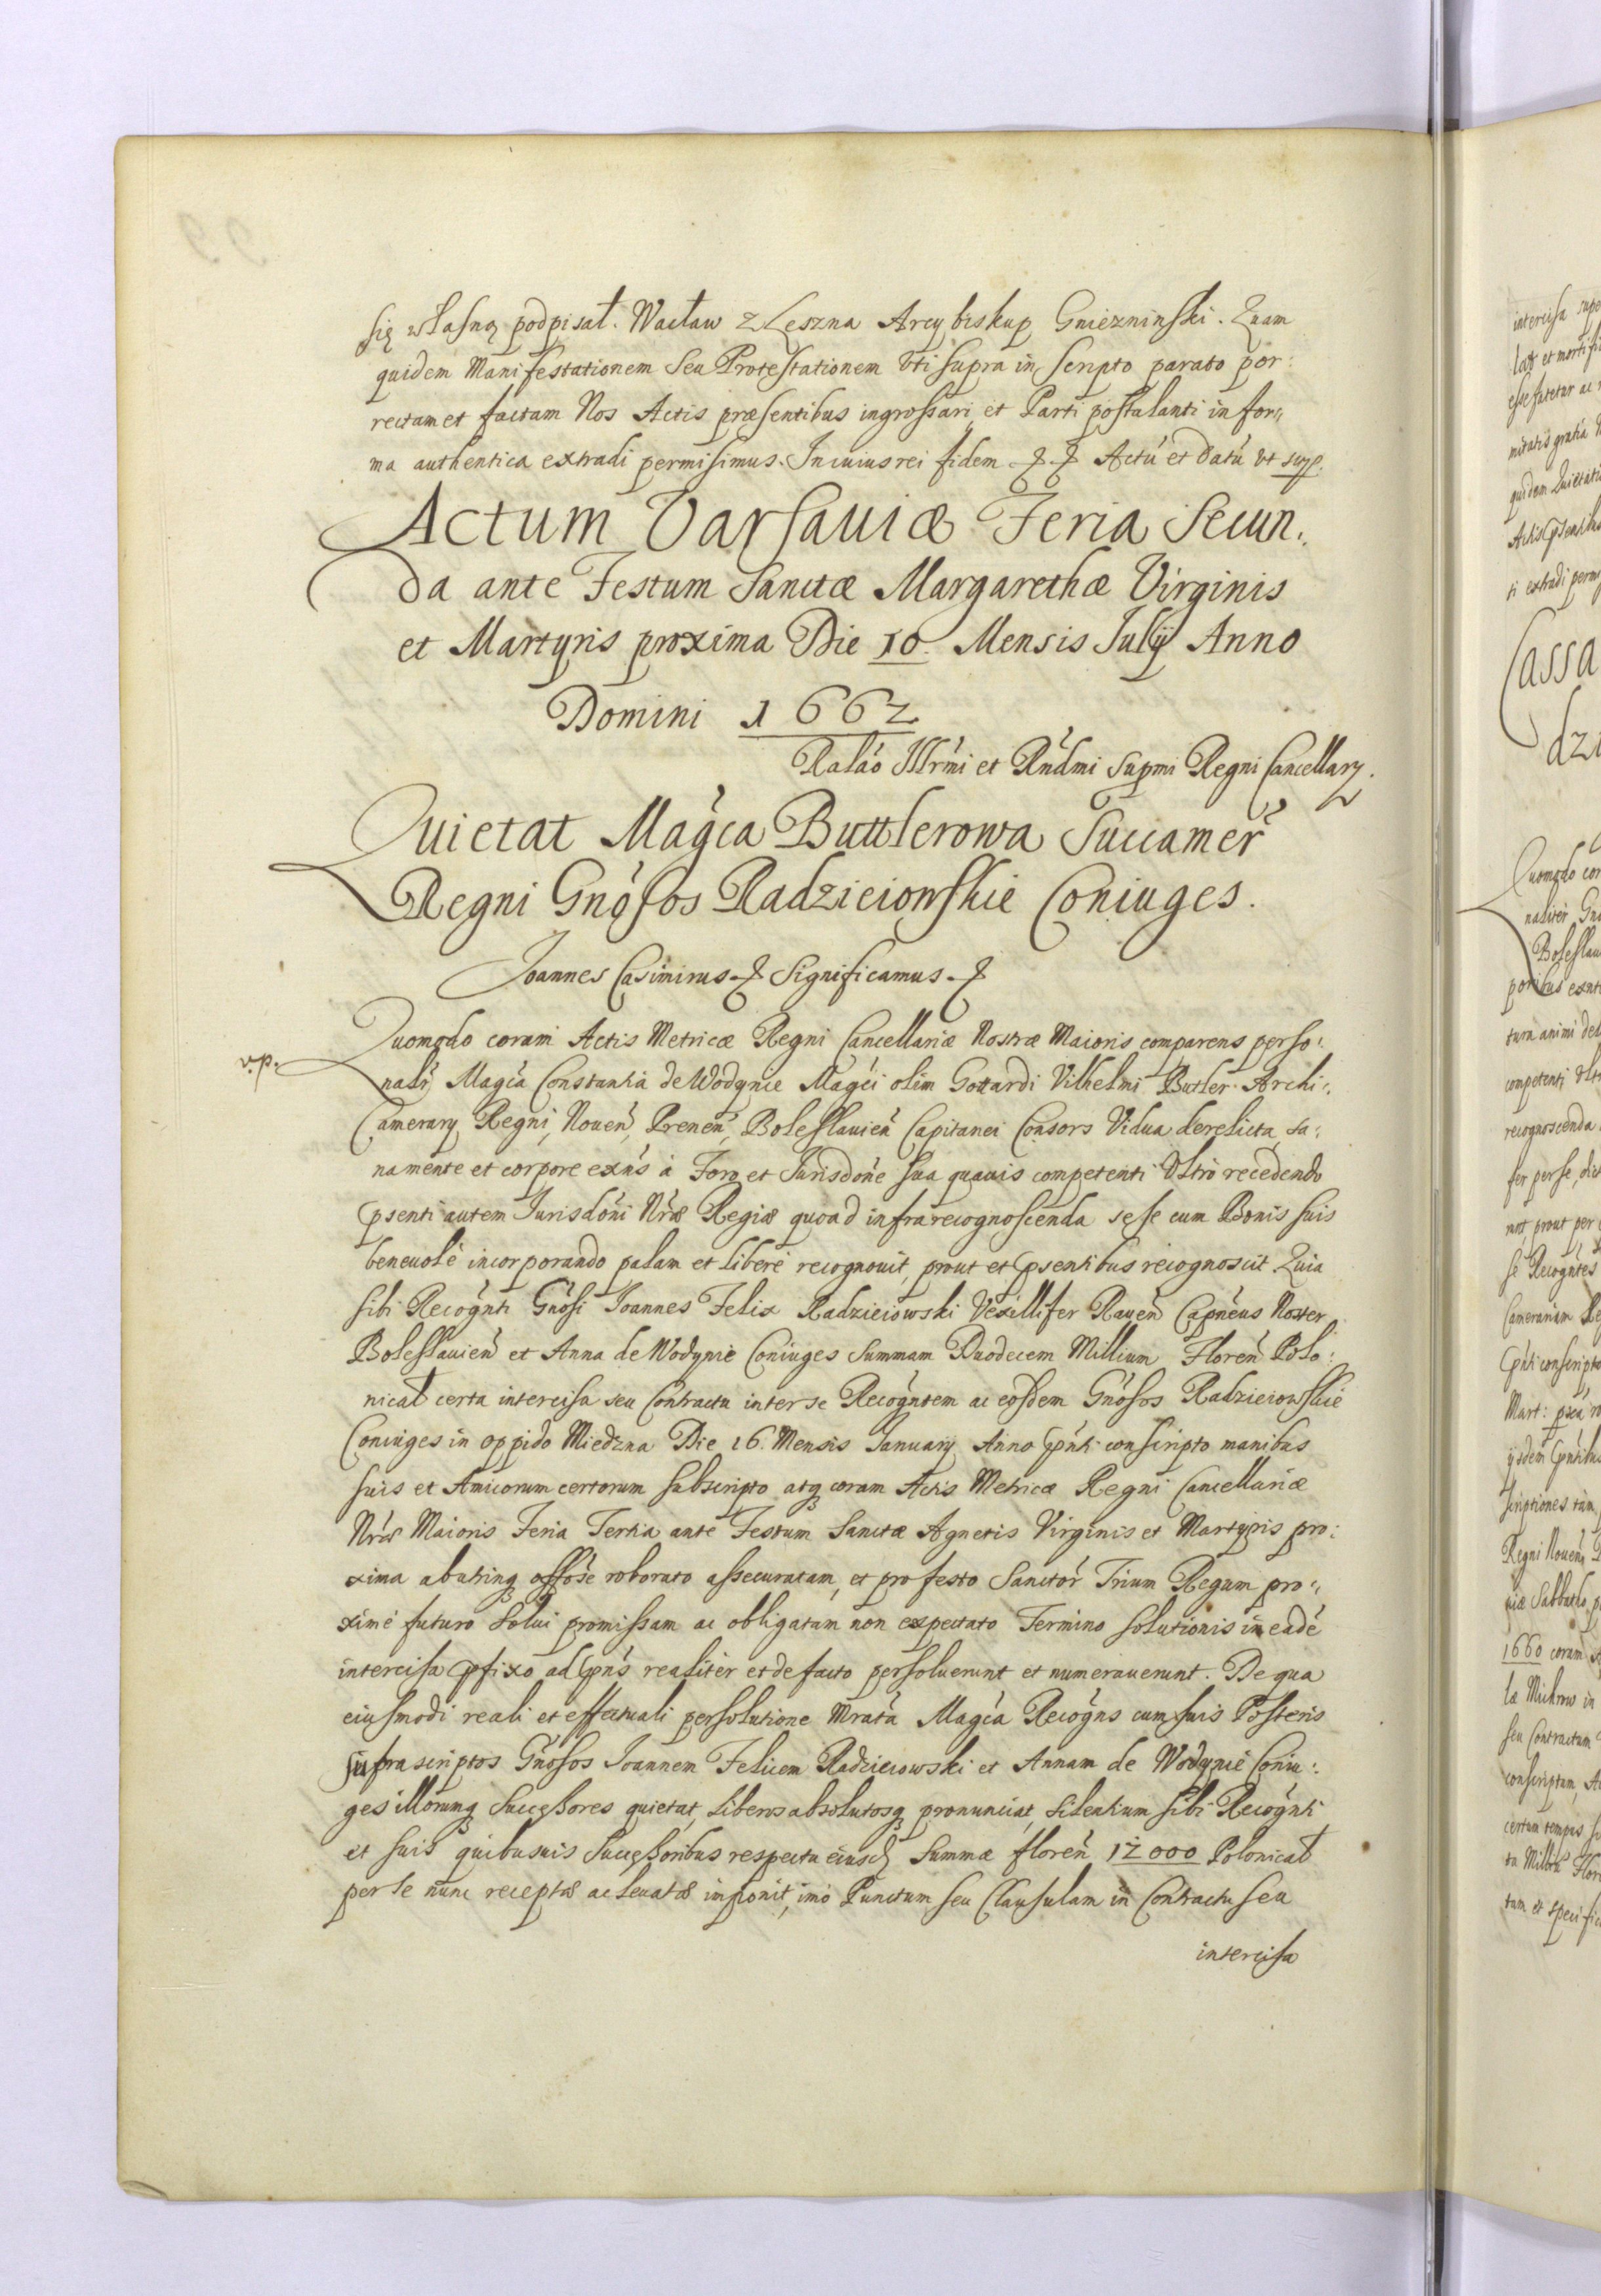 się własną podpisał. Wacław z Leszna Arcybiskup Gniezninski. Quam
quidem Manifestationem seu Protestationem Uti supra in scripto parato por:
rectam et factam Nos Actis præsentibus ingrossari et Parti postulanti in for:
ma authentica extradi permisimus. In cuius rei fidem Actū et Datū ut sup.
Actum Varsaviæ Feria Secun:
da ante Festum Sanctæ Margarethæ Virginis
et Martyris proxima Die 10. Mensis Julij Anno
Domini 1662
Relāo Illr̄mi et Rn̄dmi Supmi Regni Cancellarij.
Quietat Magc̄a Buttlerowa Succamer̄
Regni Gnōsos Radzieiowskie Coniuges.
Joannes Casimirus Significamus
Quomodo coram Actis Metricæ Regni Cancellariæ Nostræ Maioris comparens perso:
v.p.
nalr̄ Magc̄a Constantia de Wodynie Magc̄i olim Gottardi Vilhelmi Butler Archi:
Camerarij Regni, Noven̄, Prenen̄, Boleslavien̄ Capitanei Consors Vidua derelicta, sa:
na mente et corpore exn̄s à Foro et Jurisdōne sua quavis competenti Ultrò recedendo
psenti autem Jurisdōni Nr̄æ Regiæ quoad infrarecognoscenda sese cum Bonis suis
benevolè incorporando palam et liberè recognovit, prout et psentibus recognoscit. Quia
sibi Recogn̄ti Gn̄osi Joannes Felix Radzieiowski Vexillifer Raven̄ Capn̄eus Noster
Boleslavien̄ et Anna de Wodynie Coniuges Summam Duodecem Millium Floren̄ Polo:
nical certa intercisa seu Contractu inter se Recogn̄tem ac eosdem Gn̄osos Radzieiowskie
Coniuges in oppido Miedzna Die 16. Mensis January Anno pn̄ti conscripto manibus
suis et Amicorum certorum subscripto atq coram Actis Metricæ Regni Cancellariæ
Nr̄æ Maioris Feria Tertia ante Festum Sanctæ Agnetis Virginis et Martyris pro:
xima ab utrinq roborato assecuratam, et pro festo Sanctor̄ Trium Regum pro:
ximè futuro solui promissam ac obligatam non expectato Termino solutionis in eadē
intercisa pfixo ad pn̄s realiter et de facto persoluerunt et numeraverunt. De qua
eiusmodi reali et effectuali persolutione Mrata Magc̄a Recogn̄s cum suis Posteris
suprascriptos Gn̄osos Joannem Felicem Radzieiowski et Annam de Wodynie Coniu:
ges illorumq Successores quietat, liberos absolutosq pronunciat, silentium sibi Recogn̄ti
et suis quibusuis Successoribus respectu eiusd Summæ floren̄ 12000 Polonical
per se nunc receptæ ac levatæ imponit, imò Punctum seu Clausulam in Contractu seu
intercisa